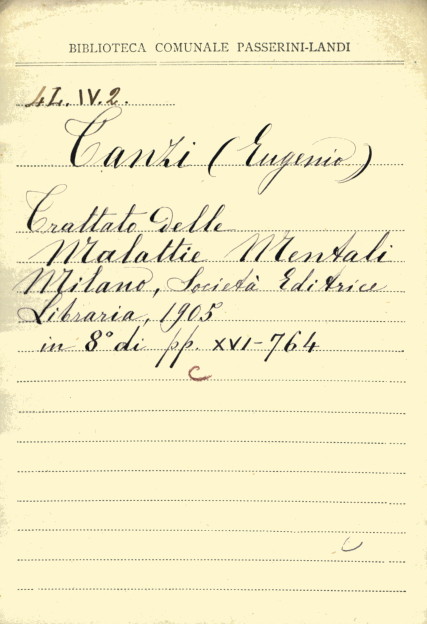 BIBLIOTECA COMUNALE PASSERINI-LANDI
4L.IV.2.
Tanzi (Eugenio)
Trattato delle
Malattie Mentali
Milano, Società Editrice
Libraria, 1905
in 8° di pp. XVI-764
C